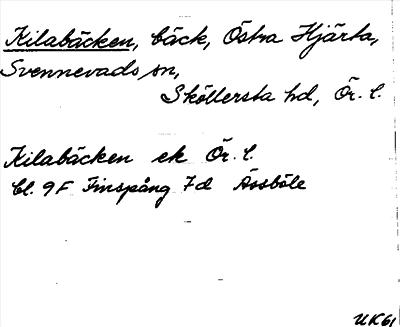 Kilabäcken, bäck, Östra Hjärta,
Svennevads sn,
Sköllersta hd, Ör. l.
Kilabäcken ek Ör. l.
bl. 9F Finspång 7d Åssböle
UK61